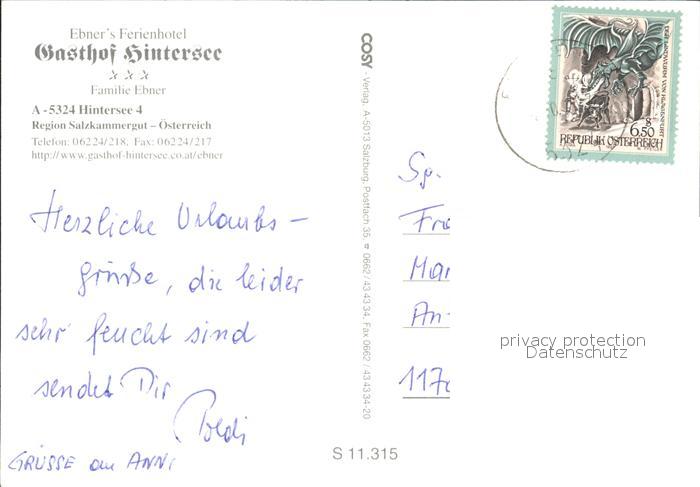 Ebner's Ferienhotel
Gasthof Hintersee
Familie Ebner
A - 5324 Hintersee 4
Region Salzkammergut – Österreich
Telefon: 06224/218, Fax: 06224/217
http://www.gasthof-hintersee.co.at/ebner
Herzliche Urlaubs –
grüße, die leider
sehr feucht sind
sendet Dir
Poldi
GRÜSSE an ANNI
COSY - Verlag, A-5013 Salzburg, Postfach 35, ☎ 0662 / 43 43 34, Fax 0662 / 43 43 34-20
DER LINDWURM VON KLAGENFURT
S
6.50
REPUBLIK ÖSTERREICH
Sp.
Fr
Mar
An
117
privacy protection
Datenschutz
S 11.315